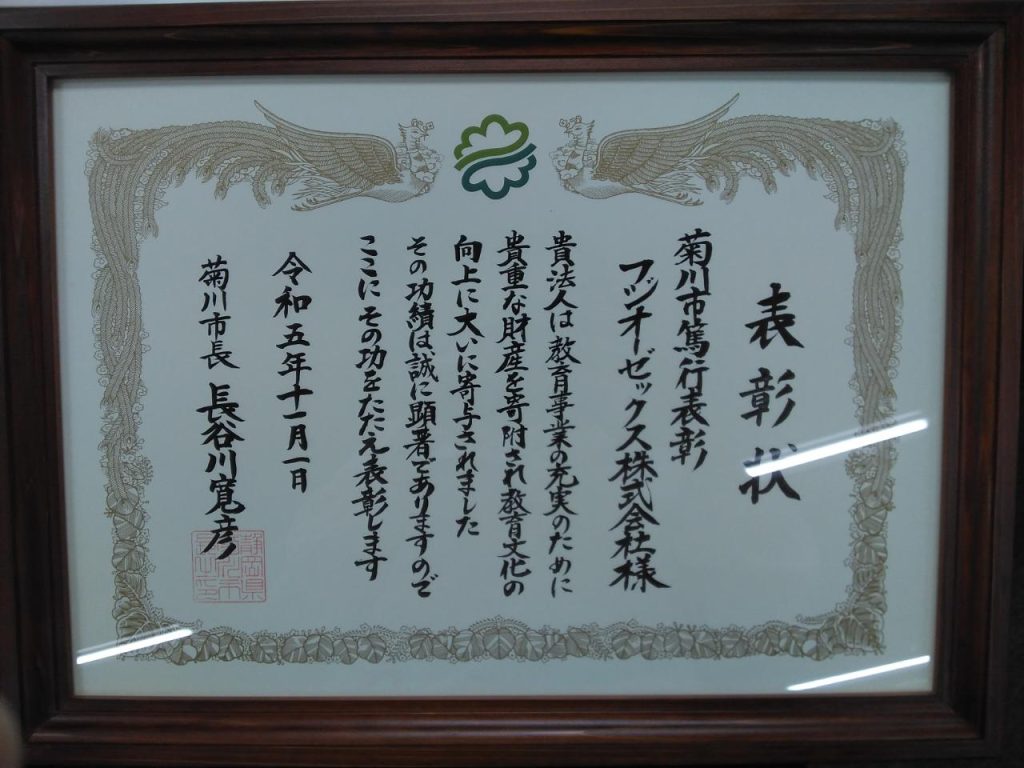 表彰状
菊川市篤行表彰
フジオーゼックス株式会社様
貴法人は教育事業の充実のために
貴重な財産を寄附され教育文化の
向上に大いに寄与されました
その功績は誠に顕著でありますので
ここにその功をたたえ表彰します
令和五年十一月一日
菊川市長 長谷川寬彦